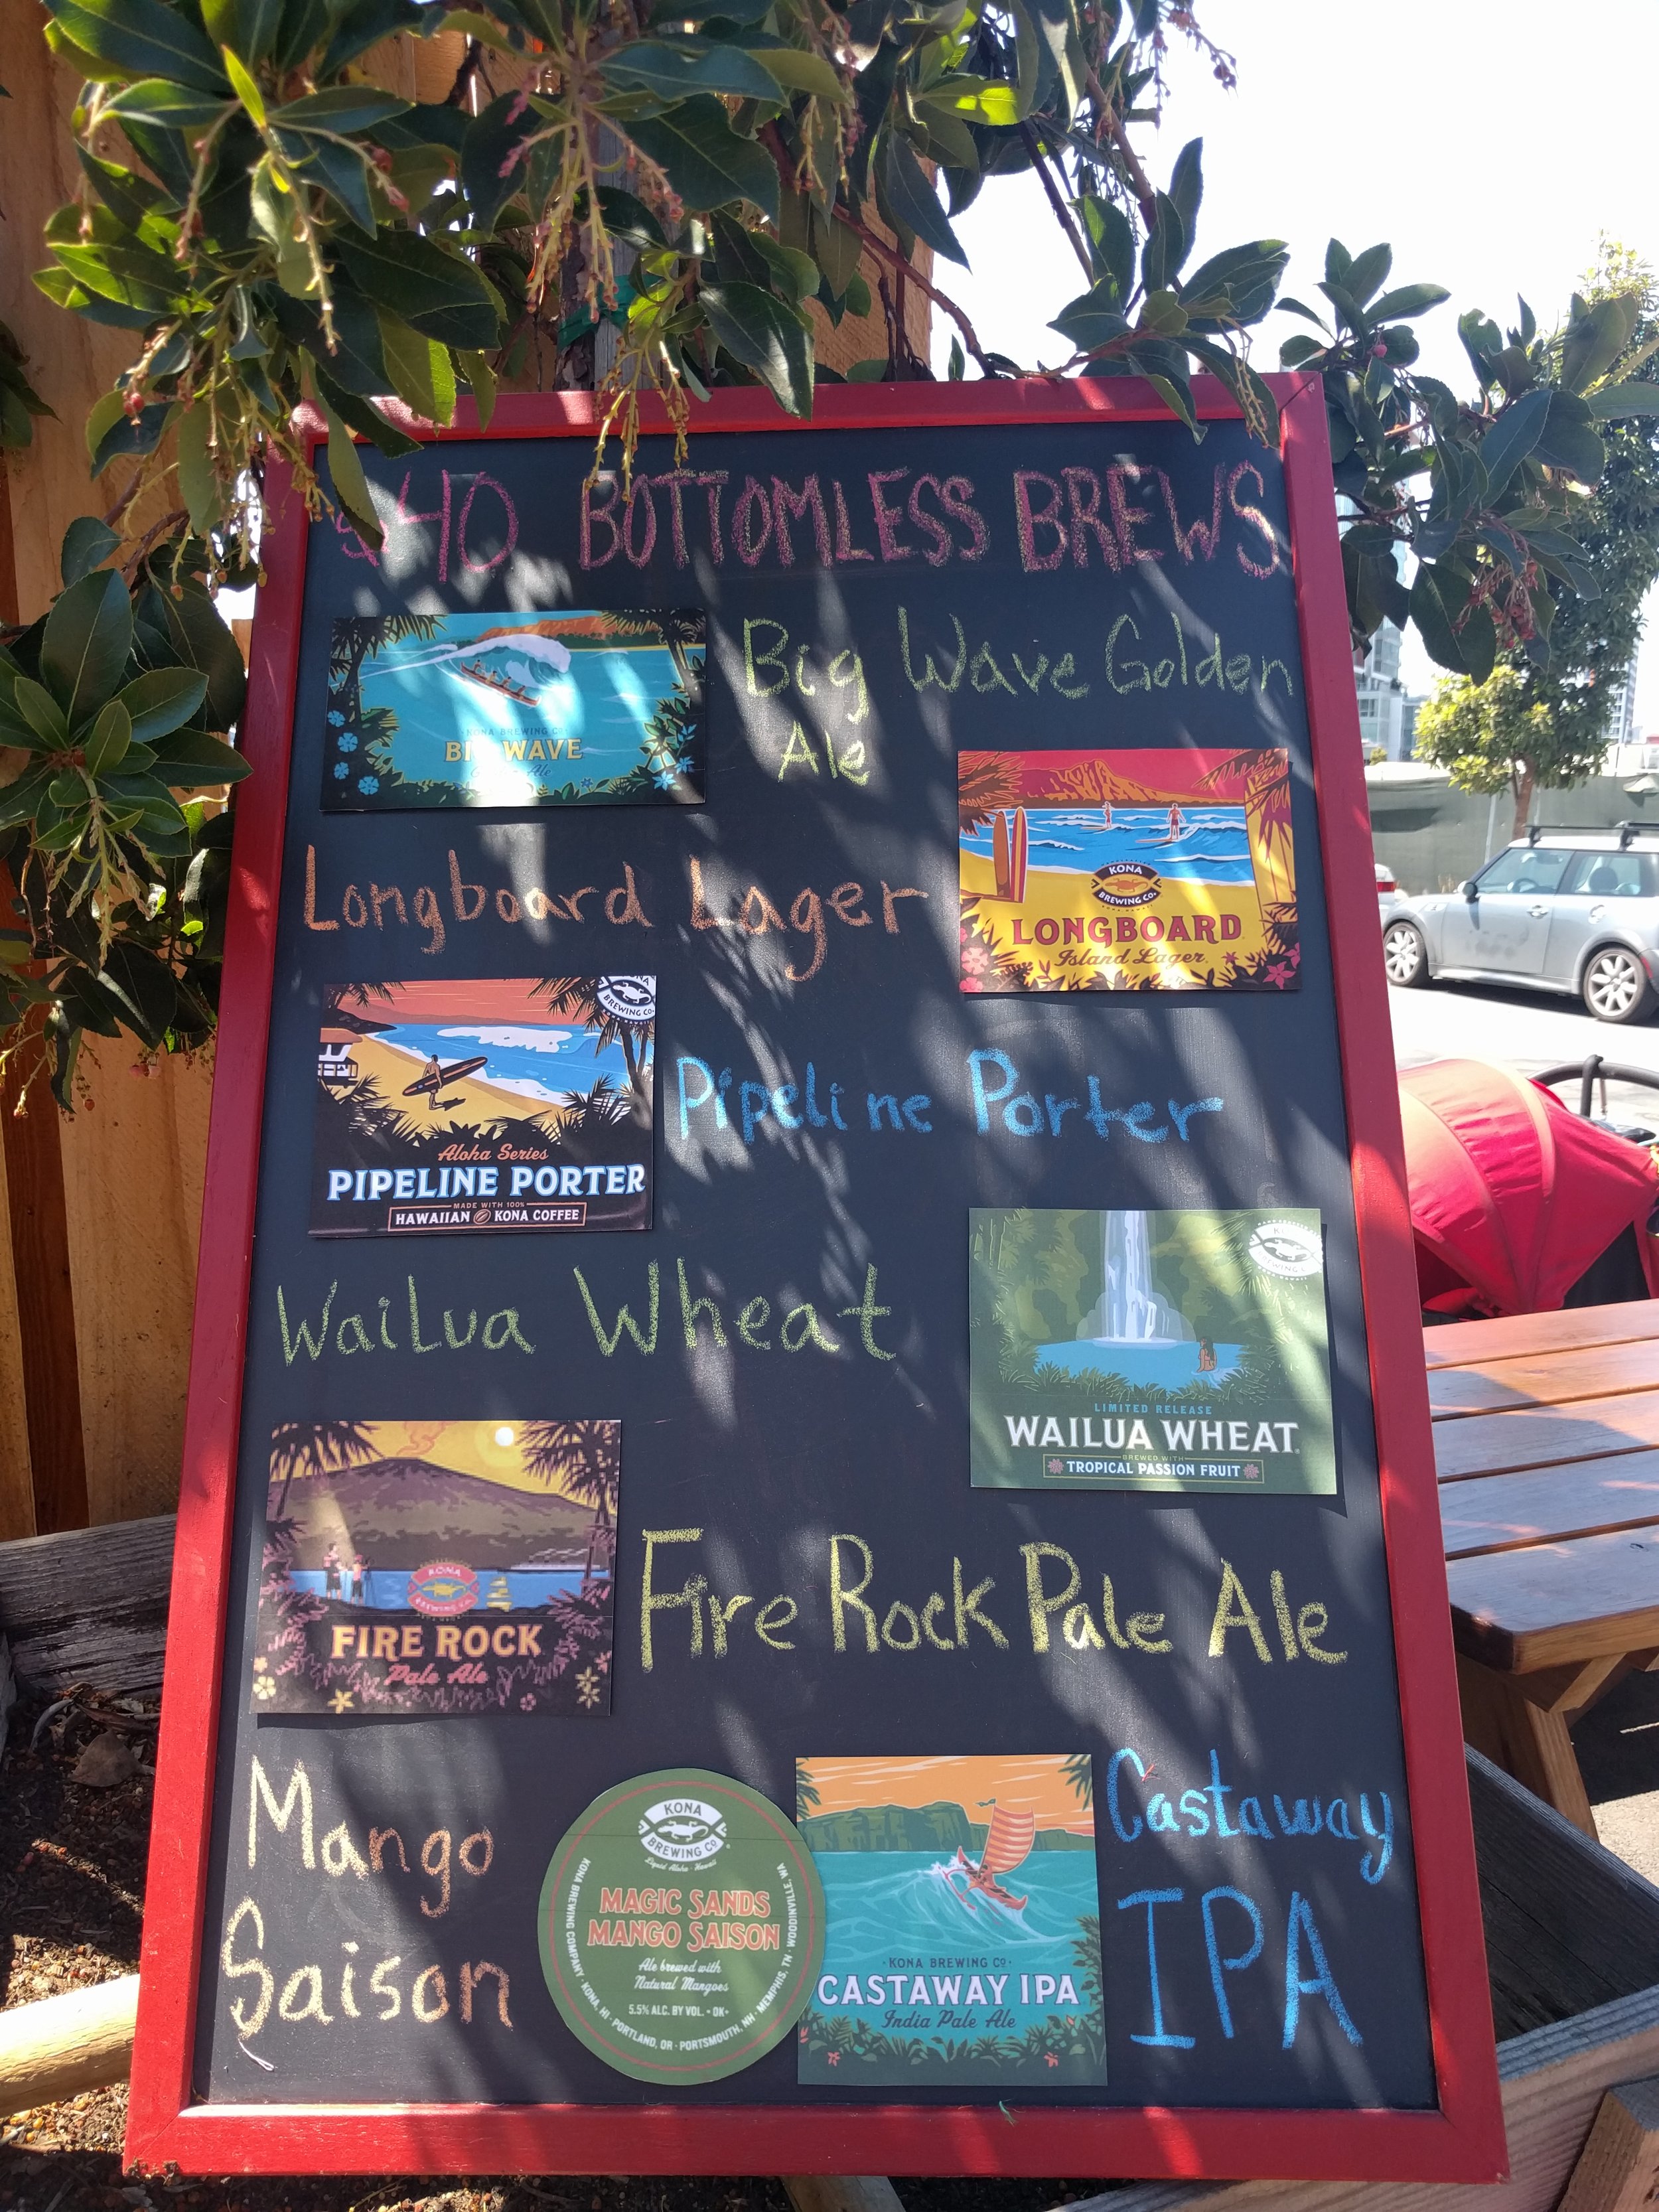 $40 BOTTOMLESS BREWS
Big Wave Golden
Ale
KONA BREWING CO.
BIG WAVE
Golden Ale
Longboard Lager
KONA
BREWING CO.
LONGBOARD
Island Lager.
BREWING CO.
Aloha Series
PIPELINE PORTER
MADE WITH 100%
HAWAIIAN KONA COFFEE
Pipeline Porter
WaiLua Wheat
LIMITED RELEASE
WAILUA WHEAT
BREWED WITH
TROPICAL PASSION FRUIT
KONA
BREWING CO.
FIRE ROCK
Pale Ale
Fire Rock Pale Ale
Mango
Saison
KONA
BREWING CO.
Liquid Aloha · Hawaii
MAGIC SANDS
MANGO SAISON
Ale brewed with
Natural Mangoes
5.5% ALC. BY VOL. • OK+
KONA BREWING COMPANY · KONA, HI · PORTLAND, OR · PORTSMOUTH, NH · MEMPHIS, TN · WOODINVILLE, WA
· KONA BREWING CO ·
CASTAWAY IPA
India Pale Ale
Castaway
IPA